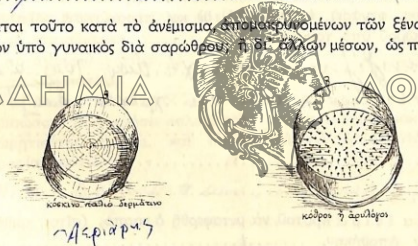 ται τοῦτο κατὰ τὸ ἀνέμισμα, ἀπομακρυνομένων τῶν ξένω
ν ὑπὸ γυναικὸς διὰ σαρώθρου; ἢ δι' ἄλλων μέσων, ὡς π
ΔΗΜΙΑ ΑΘ
κόσκινο παλιό δερμάτινο
κόθρος ἢ ἀριλόγος